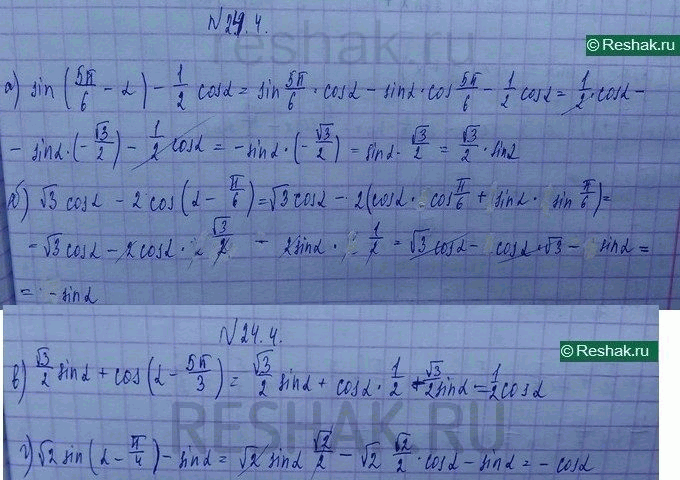 №24.4.
Reshak.ru
а) sin(5π/6 - α) - 1/2 cosα = sin 5π/6 · cosα - sinα · cos 5π/6 - 1/2 cosα = 1/2 · cosα -
- sinα · (-√3/2) - 1/2 cosα = - sinα · (-√3/2) = sinα · √3/2 = √3/2 · sinα
б) √3 cosα - 2 cos(α - π/6) = √3 cosα - 2(cosα · cos π/6 + sinα · sin π/6) =
= √3 cosα - 2 cosα · √3/2 - 2 sinα · 1/2 = √3 cosα - cosα · √3 - sinα =
= - sinα
№24.4.
Reshak.ru
в) √3/2 sinα + cos(α - 5π/3) = √3/2 sinα + cosα · 1/2 - √3/2 sinα = 1/2 cosα
RESHAK.RU
г) √2 sin(α - π/4) - sinα = √2 sinα √2/2 - √2 √2/2 · cosα - sinα = - cosα